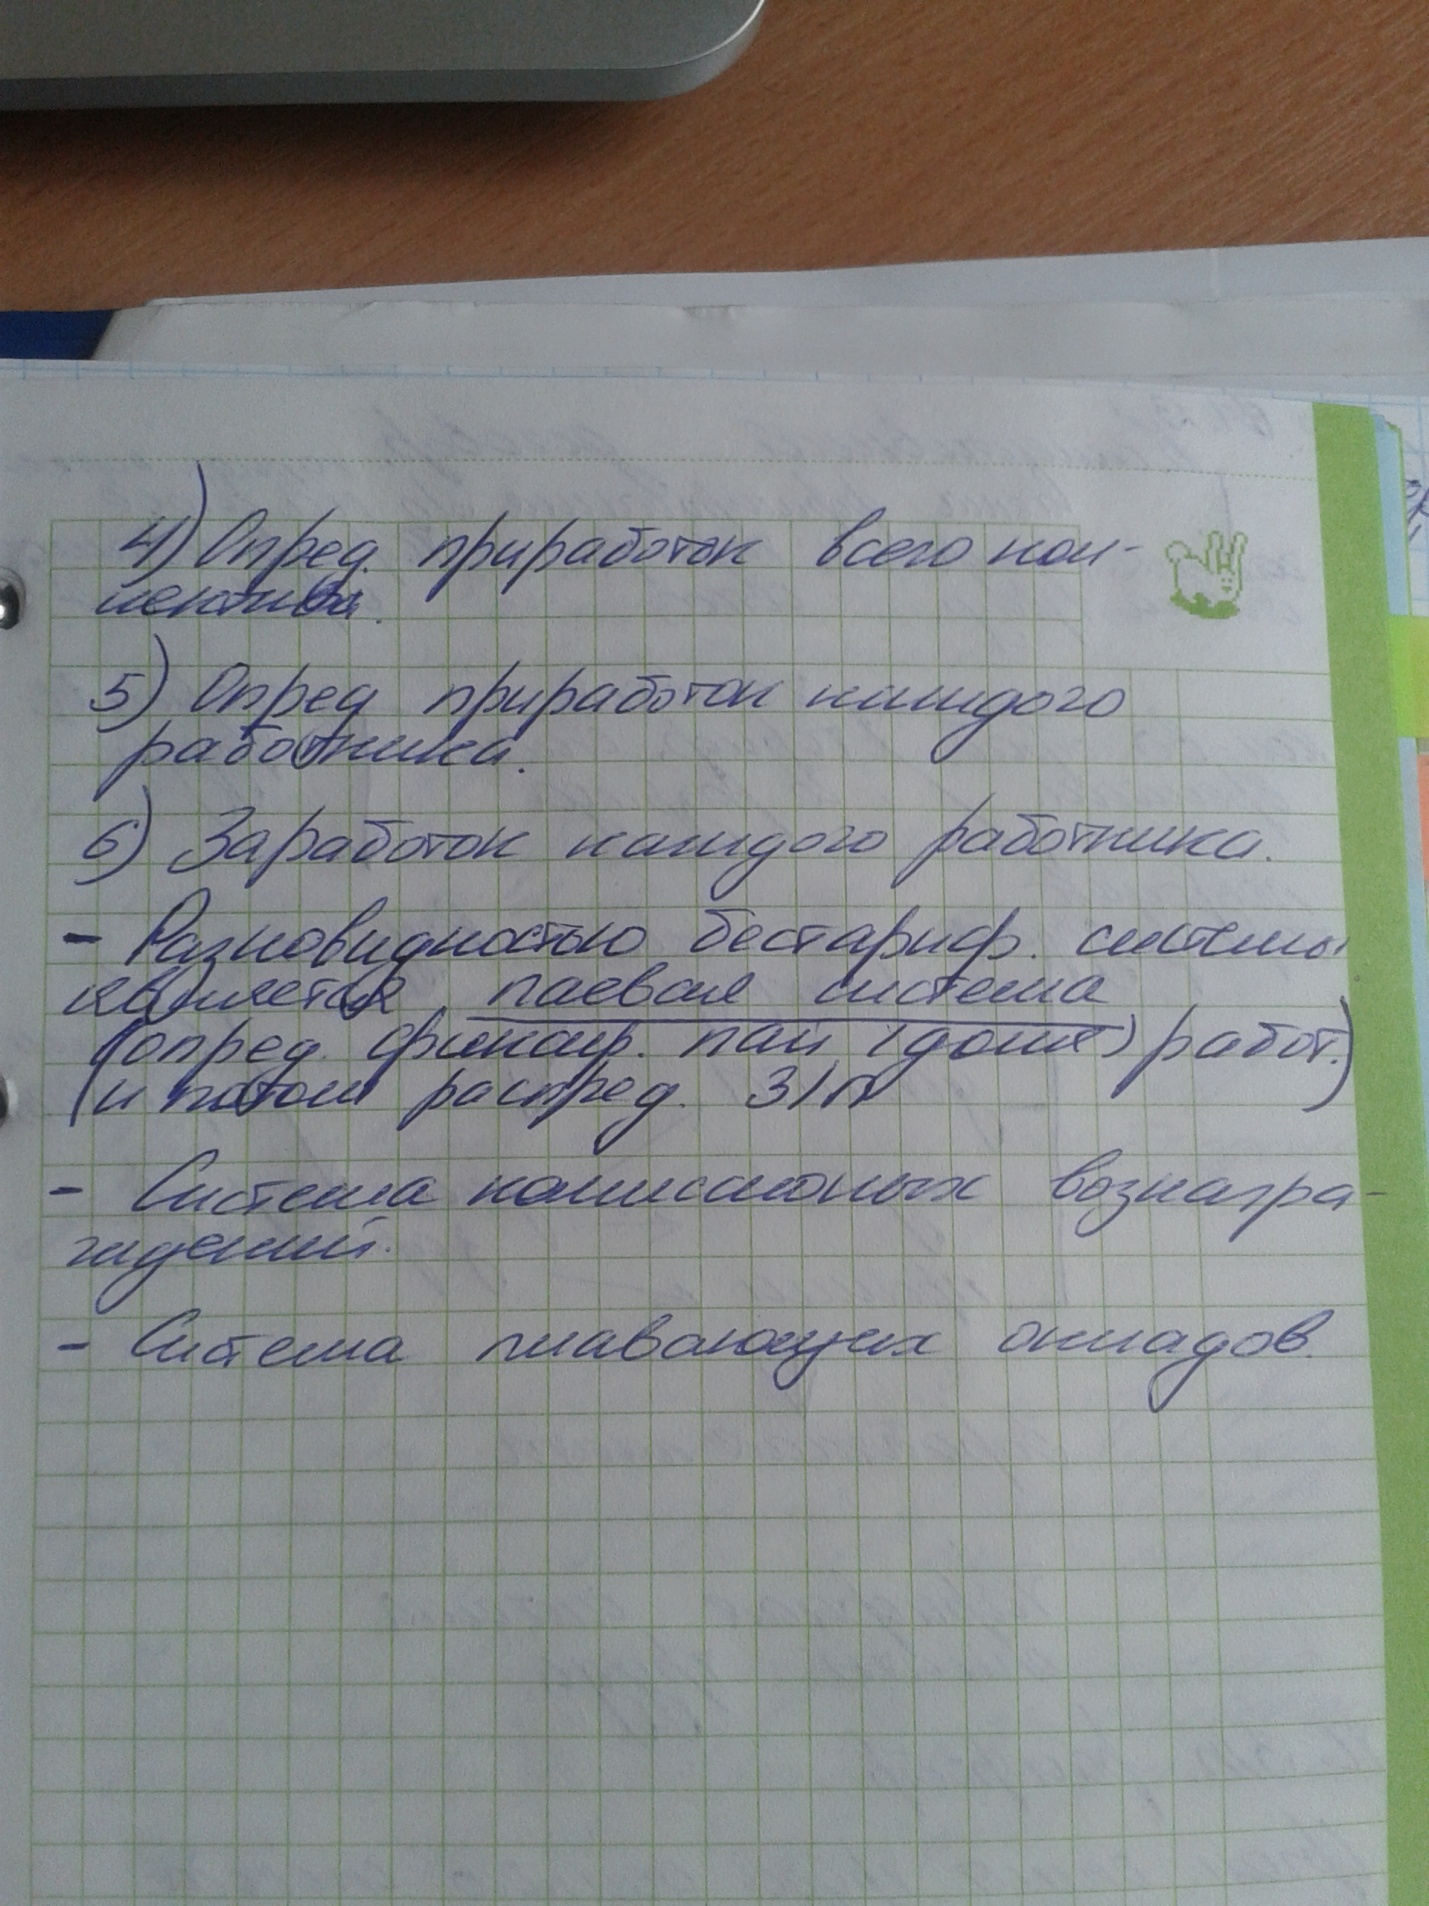 4) Опред. приработок всего кол-
лектива.
5) Опред приработок каждого
работника.
6) Заработок каждого работника.
- Разновидностью бестариф. системы
является паевая система
(опред. фиксир. пай (доля) работ.)
(и потом распред. З/п)
- Система комиссионых вознагра-
ждений.
- Система плавающих окладов.